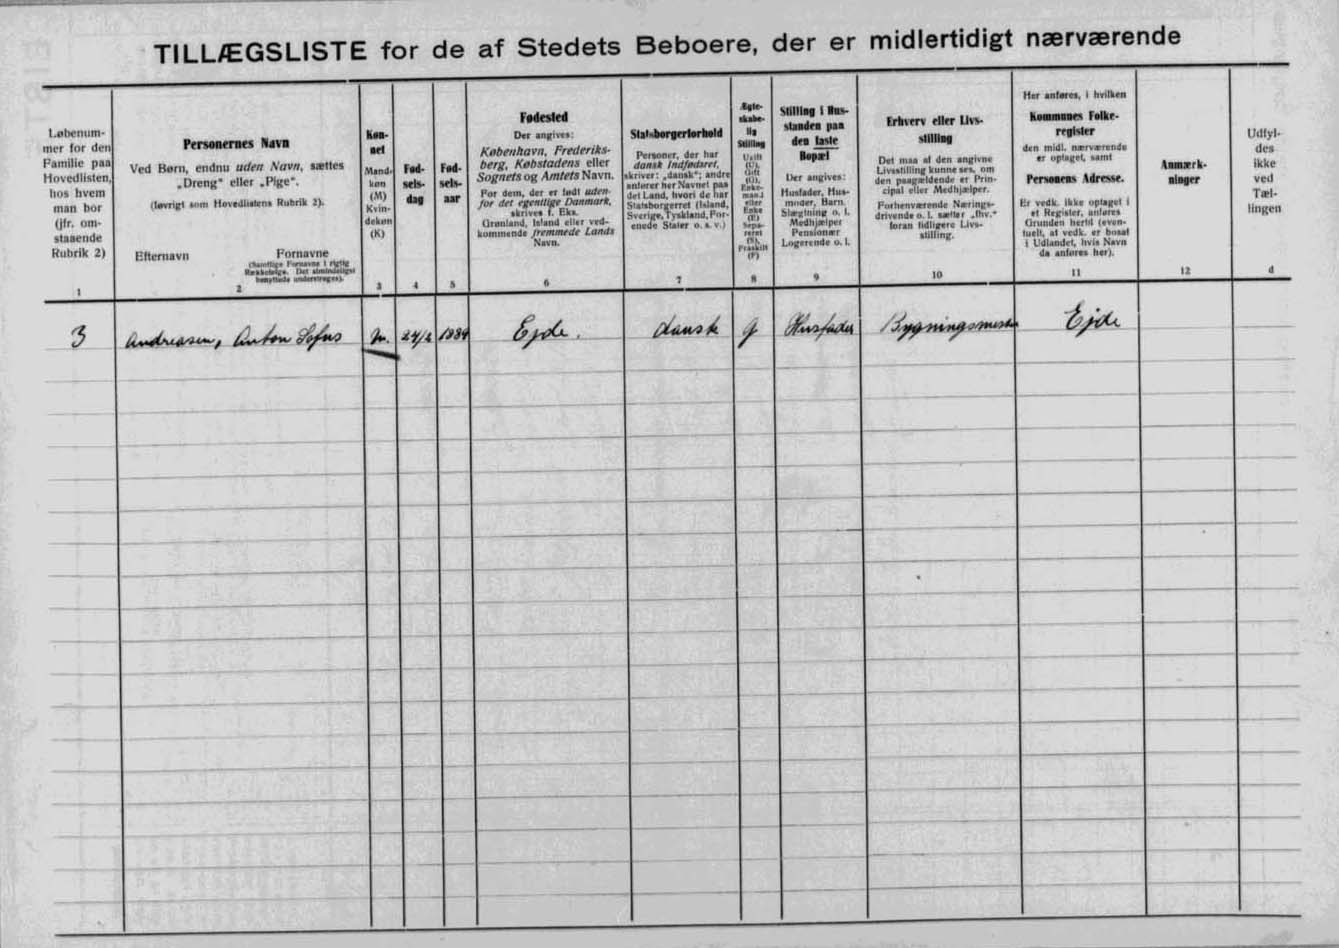 TILLÆGSLISTE for de af Stedets Beboere, der er midlertidigt nærværende
Løbenum-
mer for den
Familie paa
Hovedlisten,
hos hvem
man bor
(jfr. om-
staaende
Rubrik 2)
1
Personernes Navn
Ved Børn, endnu uden Navn, sættes
„Dreng“ eller „Pige“.
(Iøvrigt som Hovedlistens Rubrik 2).
Efternavn
Fornavne
(Samtlige Fornavne i rigtig
Rækkefølge. Det almindeligst
benyttede understreges).
2
Køn-
net
Mand-
køn
(M)
Kvin-
dekøn
(K)
3
Fød-
sels-
dag
4
Fød-
sels-
aar
5
Fødested
Der angives:
København, Frederiks-
berg, Købstadens eller
Sognets og Amtets Navn.
For dem, der er født uden-
for det egentlige Danmark,
skrives f. Eks.
Grønland, Island eller ved-
kommende fremmede Lands
Navn.
6
Statsborgerforhold
Personer, der har
dansk Indfødsret,
skriver: „dansk“; andre
anfører her Navnet paa
det Land, hvori de har
Statsborgerret (Island,
Sverige, Tyskland, For-
enede Stater o. s. v.)
7
Ægte-
skabe-
lig
Stilling
Ugift
(U),
Gift
(G),
Enke-
mand
eller
Enke
(E)
Sepa-
reret
(S),
Fraskilt
(F)
8
Stilling i Hus-
standen paa
den faste
Bopæl
Der angives:
Husfader, Hus-
moder, Barn,
Slægtning o. l.
Medhjælper
Pensionær
Logerende o. l.
9
Erhverv eller Livs-
stilling
Det maa af den angivne
Livsstilling kunne ses, om
den paagældende er Prin-
cipal eller Medhjælper.
Forhenværende Nærings-
drivende o. l. sætter „fhv.“
foran tidligere Livs-
stilling.
10
Her anføres, i hvilken
Kommunes Folke-
register
den midl. nærværende
er optaget, samt
Personens Adresse.
Er vedk. ikke optaget i
et Register, anføres
Grunden hertil (even-
tuelt, at vedk. er bosat
i Udlandet, hvis Navn
da anføres her).
11
Anmærk-
ninger
12
Udfyl-
des
ikke
ved
Tæl-
lingen
d
3 Andreasen, Anton Sofus M. 24/2 1889 Ejde. dansk g Husfader Bygningsmester Ejde